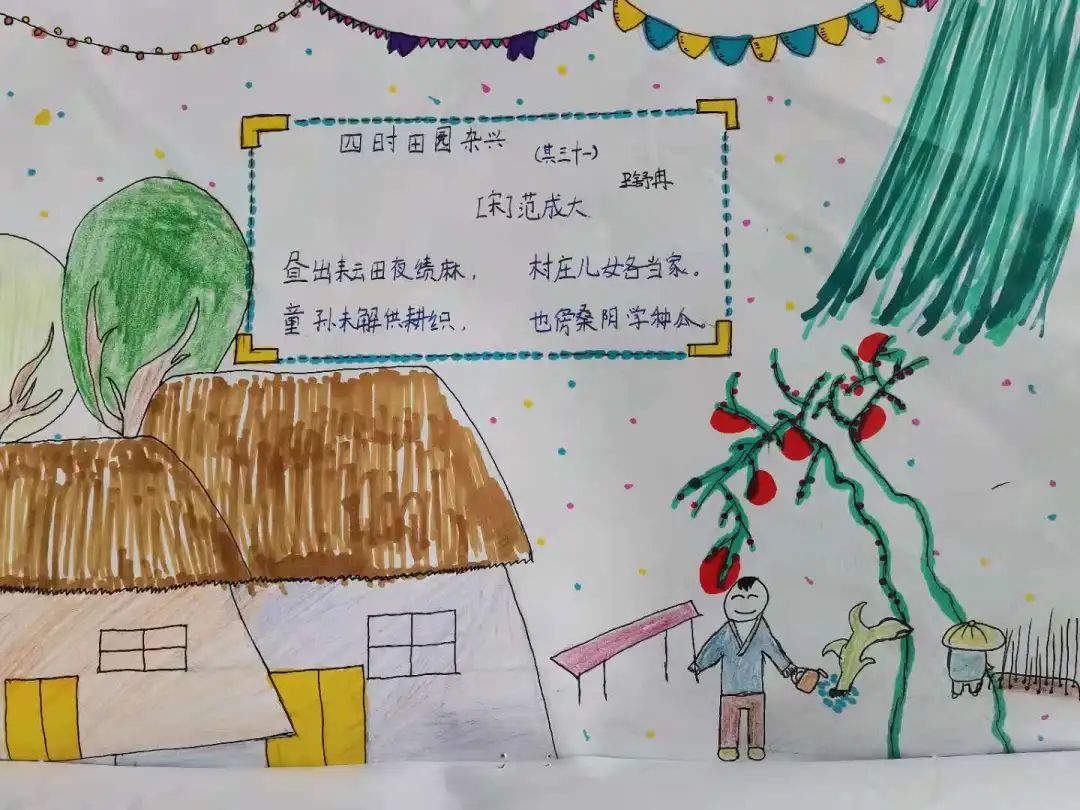 四时田园杂兴
(其三十一)
舒冉
[宋]范成大
昼出耘田夜绩麻， 村庄儿女各当家。
童孙未解供耕织， 也傍桑阴学种瓜。